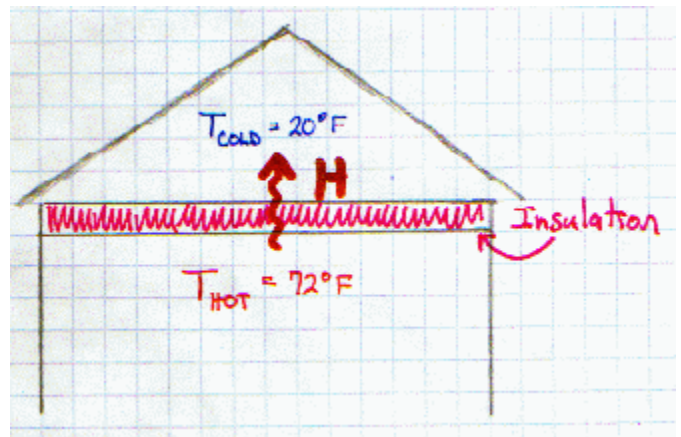 T_COLD = 20°F
H
Insulation
T_HOT = 72°F